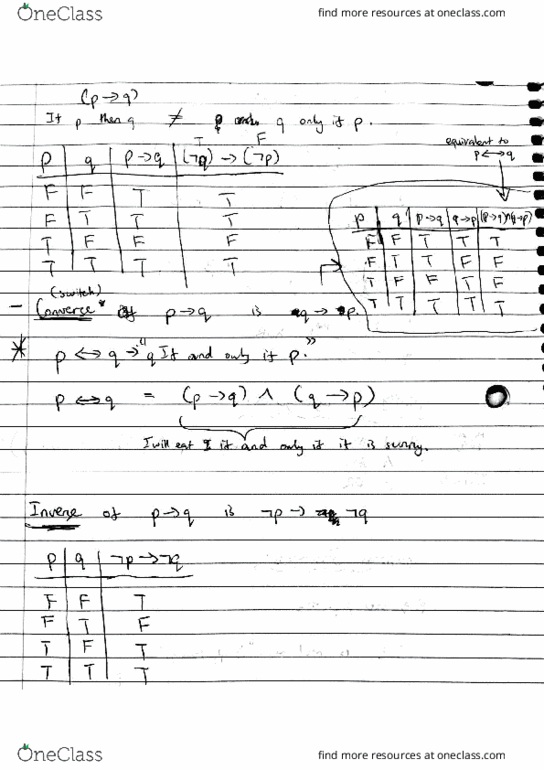 OneClass
find more resources at oneclass.com
(p→q)
If p then q ≠ q only if p.
T F
p q p→q (¬q) → (¬p)
F F T T
F T T T
T F F F
T T T T
equivalent to
p↔q
p q p→q q→p (p→q)∧(q→p)
F F T T T
F T T F F
T F F T F
T T T T T
(switch)
- Converse* of p→q is q→p.
* p ↔ q → "q If and only if p."
p ↔ q = (p→q) ∧ (q→p)
I will eat if and only if it is sunny.
Inverse of p→q is ¬p → ¬q
p q ¬p→¬q
F F T
F T F
T F T
T T T
OneClass
find more resources at oneclass.com